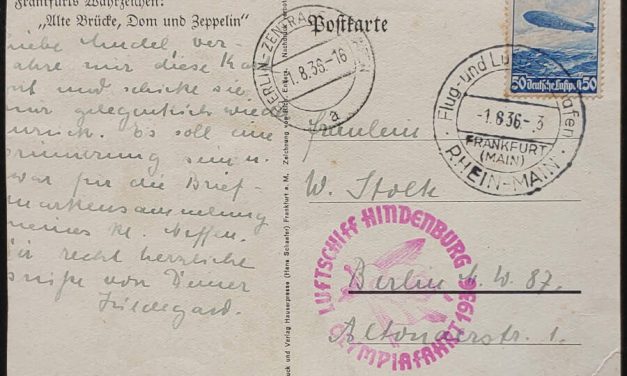 Frankfurts Wahrzeichen:
„Alte Brücke, Dom und Zeppelin“
Postkarte
liebe Mudel, ver-
wahre mir diese Kar
und schicke sie
mir gelegentlich wied
urück. Es soll eine
rinnerung sein u.
war für die Brief-
markensammlung
meines kl. Neffen.
Dir recht herzliche
Grüße von Deiner
Hildegard.
Druck und Verlag Hauserpresse (Hans Schaefer) Frankfurt a. M. Zeichnung
BERLIN-ZENTRAL
.8.36.-16
a
50 deutsche Luftp 50
Flug- und Luft hafen
-1.8.36.-3
FRANKFURT
(MAIN)
RHEIN-MAIN
Fräulein
W. Stolk
Berlin N.W. 87.
Altonaerstr. 1.
LUFTSCHIFF HINDENBURG
OLYMPIAFAHRT 1936